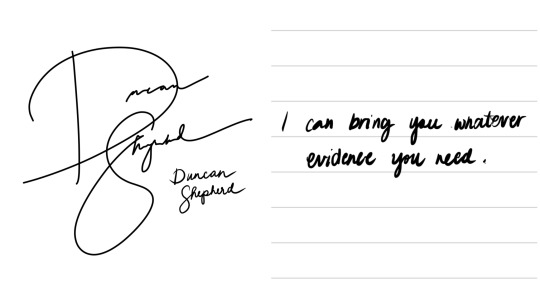 Duncan
Shepherd
Duncan
Shepherd
I can bring you whatever
evidence you need.